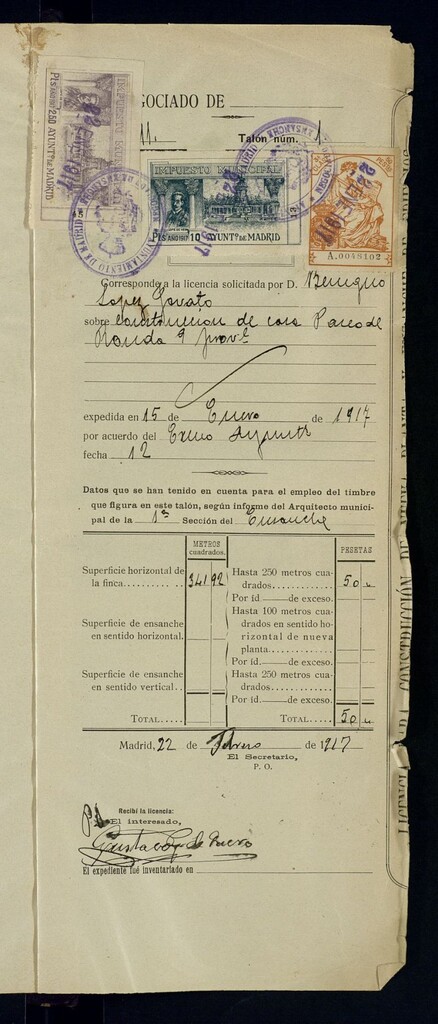 GOCIADO DE
Talón núm. 1
PTS AÑO 1917 2'50 AYUNTº DE MADRID
IMPUESTO MUNICIPAL
PTS AÑO 1917 10 AYUNTº DE MADRID
AYUNTAMIENTO DE MADRID
A.0048102
Corresponde á la licencia solicitada por D. Benigno
Lopez
sobre construccion de casa Paseo de
Ronda 9 provl
expedida en 15 de Enero de 1917
por acuerdo del Excmo Ayuntº
fecha 12
Datos que se han tenido en cuenta para el empleo del timbre
que figura en este talón, según informe del Arquitecto munici-
pal de la 1ª Sección del Ensanche
METROS cuadrados.
PESETAS
Superficie horizontal de
la finca.......... 341 92
Superficie de ensanche
en sentido horizontal.
Superficie de ensanche
en sentido vertical..
TOTAL.....
Hasta 250 metros cua-
drados........... 50
Por íd. —— de exceso.
Hasta 100 metros cua-
drados en sentido ho-
rizontal de nueva
planta...........
Por íd. —— de exceso.
Hasta 250 metros cua-
drados...........
Por íd. —— de exceso.
TOTAL..... 50
Madrid, 22 de Febrero de 1917
El Secretario,
P. O.
Recibí la licencia:
El interesado,
El expediente fué inventariado en